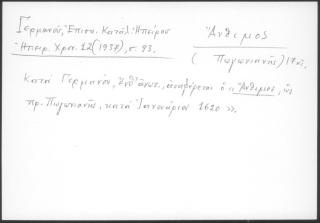 Γερμανός, Ἐπισκ. Κατάλ. Ἠπείρου
Ἠπειρ. Χρον. 12 (1937), σ. 93.
Ἄνθιμος
(Πωγωνιανῆς) 17 αἰ.
Κατὰ Γερμανόν, ἔνθ' ἀνωτ., ἀναφέρεται ὁ «Ἄνθιμος, ὡς
πρ. Πωγωνιανῆς, κατὰ Ἰανουάριον 1620».